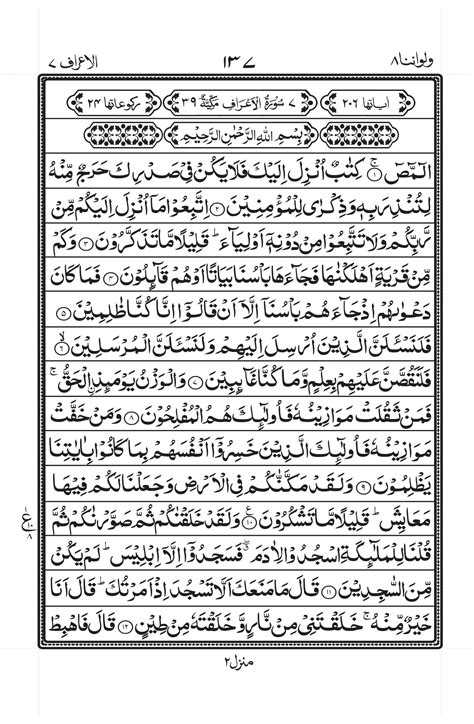 ولواننا ٨ ١٣٧ الاعراف ٧
اٰیاتها ٢٠٦ ٧ سُوْرَةُ الْاَعْرَافِ مَكِّيَّةٌ ٣٩ رکوعاتها ٢٤
بِسْمِ اللّٰهِ الرَّحْمٰنِ الرَّحِيْمِ
الٓمّٓصٓ ۚ﴿۱﴾ كِتٰبٌ اُنْزِلَ اِلَيْكَ فَلَا يَكُنْ فِيْ صَدْرِكَ حَرَجٌ مِّنْهُ
لِتُنْذِرَ بِهٖ وَذِكْرٰى لِلْمُؤْمِنِيْنَ ﴿۲﴾ اِتَّبِعُوْا مَاۤ اُنْزِلَ اِلَيْكُمْ مِّنْ
رَّبِّكُمْ وَلَا تَتَّبِعُوْا مِنْ دُوْنِهٖۤ اَوْلِيَآءَ ؕ قَلِيْلًا مَّا تَذَكَّرُوْنَ ﴿۳﴾ وَكَمْ
مِّنْ قَرْيَةٍ اَهْلَكْنٰهَا فَجَآءَهَا بَاْسُنَا بَيَاتًا اَوْ هُمْ قَآئِلُوْنَ ﴿۴﴾ فَمَا كَانَ
دَعْوٰىهُمْ اِذْ جَآءَهُمْ بَاْسُنَاۤ اِلَّاۤ اَنْ قَالُوْۤا اِنَّا كُنَّا ظٰلِمِيْنَ ﴿۵﴾
فَلَنَسْـَٔلَنَّ الَّذِيْنَ اُرْسِلَ اِلَيْهِمْ وَلَنَسْـَٔلَنَّ الْمُرْسَلِيْنَ ۙ﴿۶﴾
فَلَنَقُصَّنَّ عَلَيْهِمْ بِعِلْمٍ وَّمَا كُنَّا غَآئِبِيْنَ ﴿۷﴾ وَالْوَزْنُ يَوْمَئِذِ ِ۟الْحَقُّ ۚ
فَمَنْ ثَقُلَتْ مَوَازِيْنُهٗ فَاُولٰٓئِكَ هُمُ الْمُفْلِحُوْنَ ﴿۸﴾ وَمَنْ خَفَّتْ
مَوَازِيْنُهٗ فَاُولٰٓئِكَ الَّذِيْنَ خَسِرُوْۤا اَنْفُسَهُمْ بِمَا كَانُوْا بِاٰيٰتِنَا
يَظْلِمُوْنَ ﴿۹﴾ وَلَقَدْ مَكَّنّٰكُمْ فِي الْاَرْضِ وَجَعَلْنَا لَكُمْ فِيْهَا
مَعَايِشَ ؕ قَلِيْلًا مَّا تَشْكُرُوْنَ ﴿۱۰﴾ وَلَقَدْ خَلَقْنٰكُمْ ثُمَّ صَوَّرْنٰكُمْ ثُمَّ
قُلْنَا لِلْمَلٰٓئِكَةِ اسْجُدُوْا لِاٰدَمَ ۖ فَسَجَدُوْۤا اِلَّاۤ اِبْلِيْسَ ؕ لَمْ يَكُنْ
مِّنَ السّٰجِدِيْنَ ﴿۱۱﴾ قَالَ مَا مَنَعَكَ اَلَّا تَسْجُدَ اِذْ اَمَرْتُكَ ؕ قَالَ اَنَا
خَيْرٌ مِّنْهُ ۚ خَلَقْتَنِيْ مِنْ نَّارٍ وَّخَلَقْتَهٗ مِنْ طِيْنٍ ﴿۱۲﴾ قَالَ فَاهْبِطْ
منزل ٢